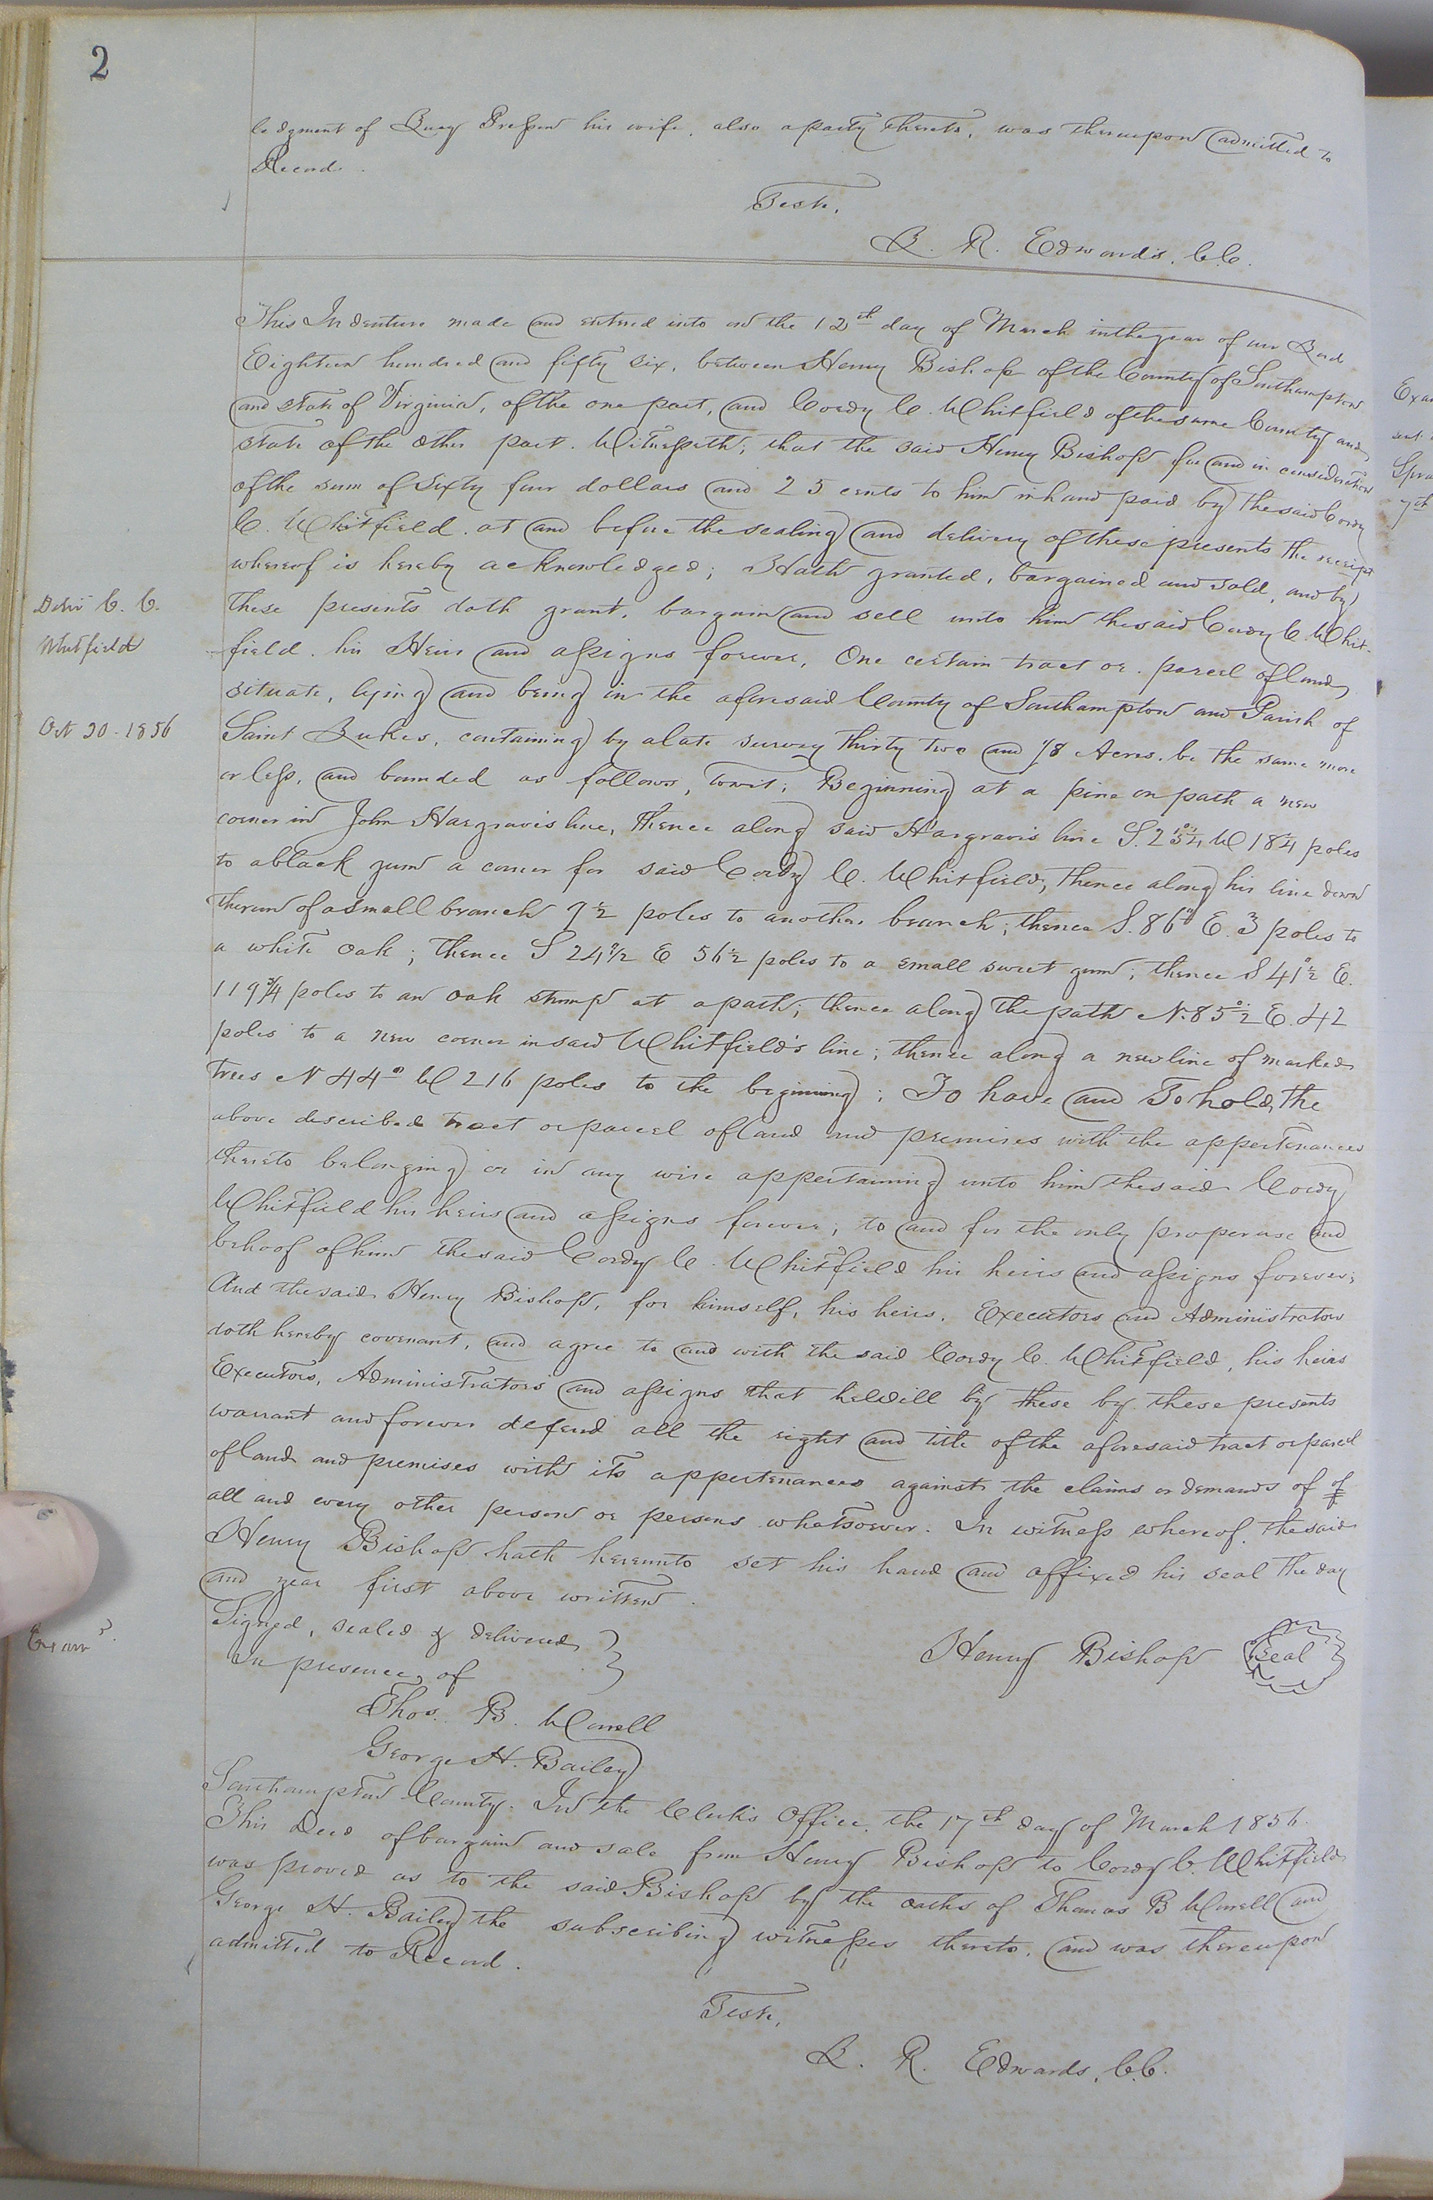 2
ledgment of Lucy Presson his wife, also a party thereto, was thereupon admitted to
Record.
Teste,
L. R. Edwards, C.C.
This Indenture made and entered into on the 12th day of March in the year of our Lord
Eighteen hundred and fifty six, between Henry Bishop of the County of Southampton
and state of Virginia, of the one part, and Cordy C. Whitfield of the same County and
state of the other part. Witnesseth; that the said Henry Bishop for and in consideration
of the sum of Sixty four dollars and 25 cents to him in hand paid by the said Cordy
C. Whitfield. at and before the sealing and delivery of these presents the receipt
whereof is hereby acknowledged; Hath granted, bargained and sold, and by
these presents doth grant, bargain and sell unto him the said Cordy C. Whit-
Deliv C. C.
Whitfield
Oct 20. 1856
field. his Heirs and assigns forever, One certain tract or parcel of land,
situate, lying and being in the aforesaid County of Southampton and Parish of
Saint Lukes, containing by a late survey thirty two and 1/8 Acres. be the same more
or less, and bounded as follows, towit; Beginning at a pine on path a new
corner in John Hargraves line, thence along said Hargraves line S. W 184 poles
to a black gum a corner for said Cordy C. Whitfield, thence along his line down
the run of a small branch 7½ poles to another branch; thence S. 86° E. 3 poles to
a white oak; thence S 24½ E 56½ poles to a small sweet gum; thence S 41°½ E.
119¾ poles to an oak stump at a path; thence along the path N. 85°½ E. 42
poles to a new corner in said Whitfield's line; thence along a new line of marked
trees N 44° W 216 poles to the beginning; To have and To hold, the
above described tract or parcel of land and premises with the appertenances
thereto belonging or in any wise appertaining unto him the said Cordy
Whitfield his heirs and assigns forever; to and for the only proper use and
behoof of him the said Cordy C. Whitfield his heirs and assigns forever;
And the said Henry Bishop, for himself, his heirs, Executors and Administrators
doth hereby covenant, and agree to and with the said Cordy C. Whitfield, his heirs
Executors, Administrators and assigns that he will by these by these presents
warrant and forever defend all the right and title of the aforesaid tract or parcel
of land and premises with its appertenances against the claims or demands of of
all and every other person or persons whatsoever. In witness whereof the said
Henry Bishop hath hereunto set his hand and affixed his seal the day
and year first above written.
Signed, sealed & delivered
in presence of
Henry Bishop Seal
Exam
Thos. B. Worrell
George H. Bailey
Southampton County. In the Clerk's Office, the 17th day of March 1856.
This Deed of bargain and sale from Henry Bishop to Cordy C. Whitfield
was proved as to the said Bishop by the oaths of Thomas B Worrell and
George H. Bailey the subscribing witnesses thereto, and was thereupon
admitted to Record.
Teste,
L. R. Edwards, C.C.